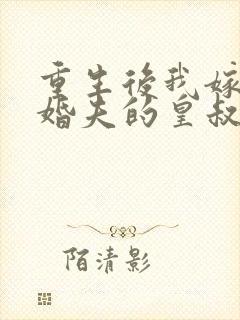 重生後我嫁
婚夫的皇叔
陌清影